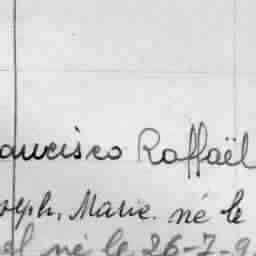 ancisco Raffaël
oseph, Marie. né le
el né le 26-7-9